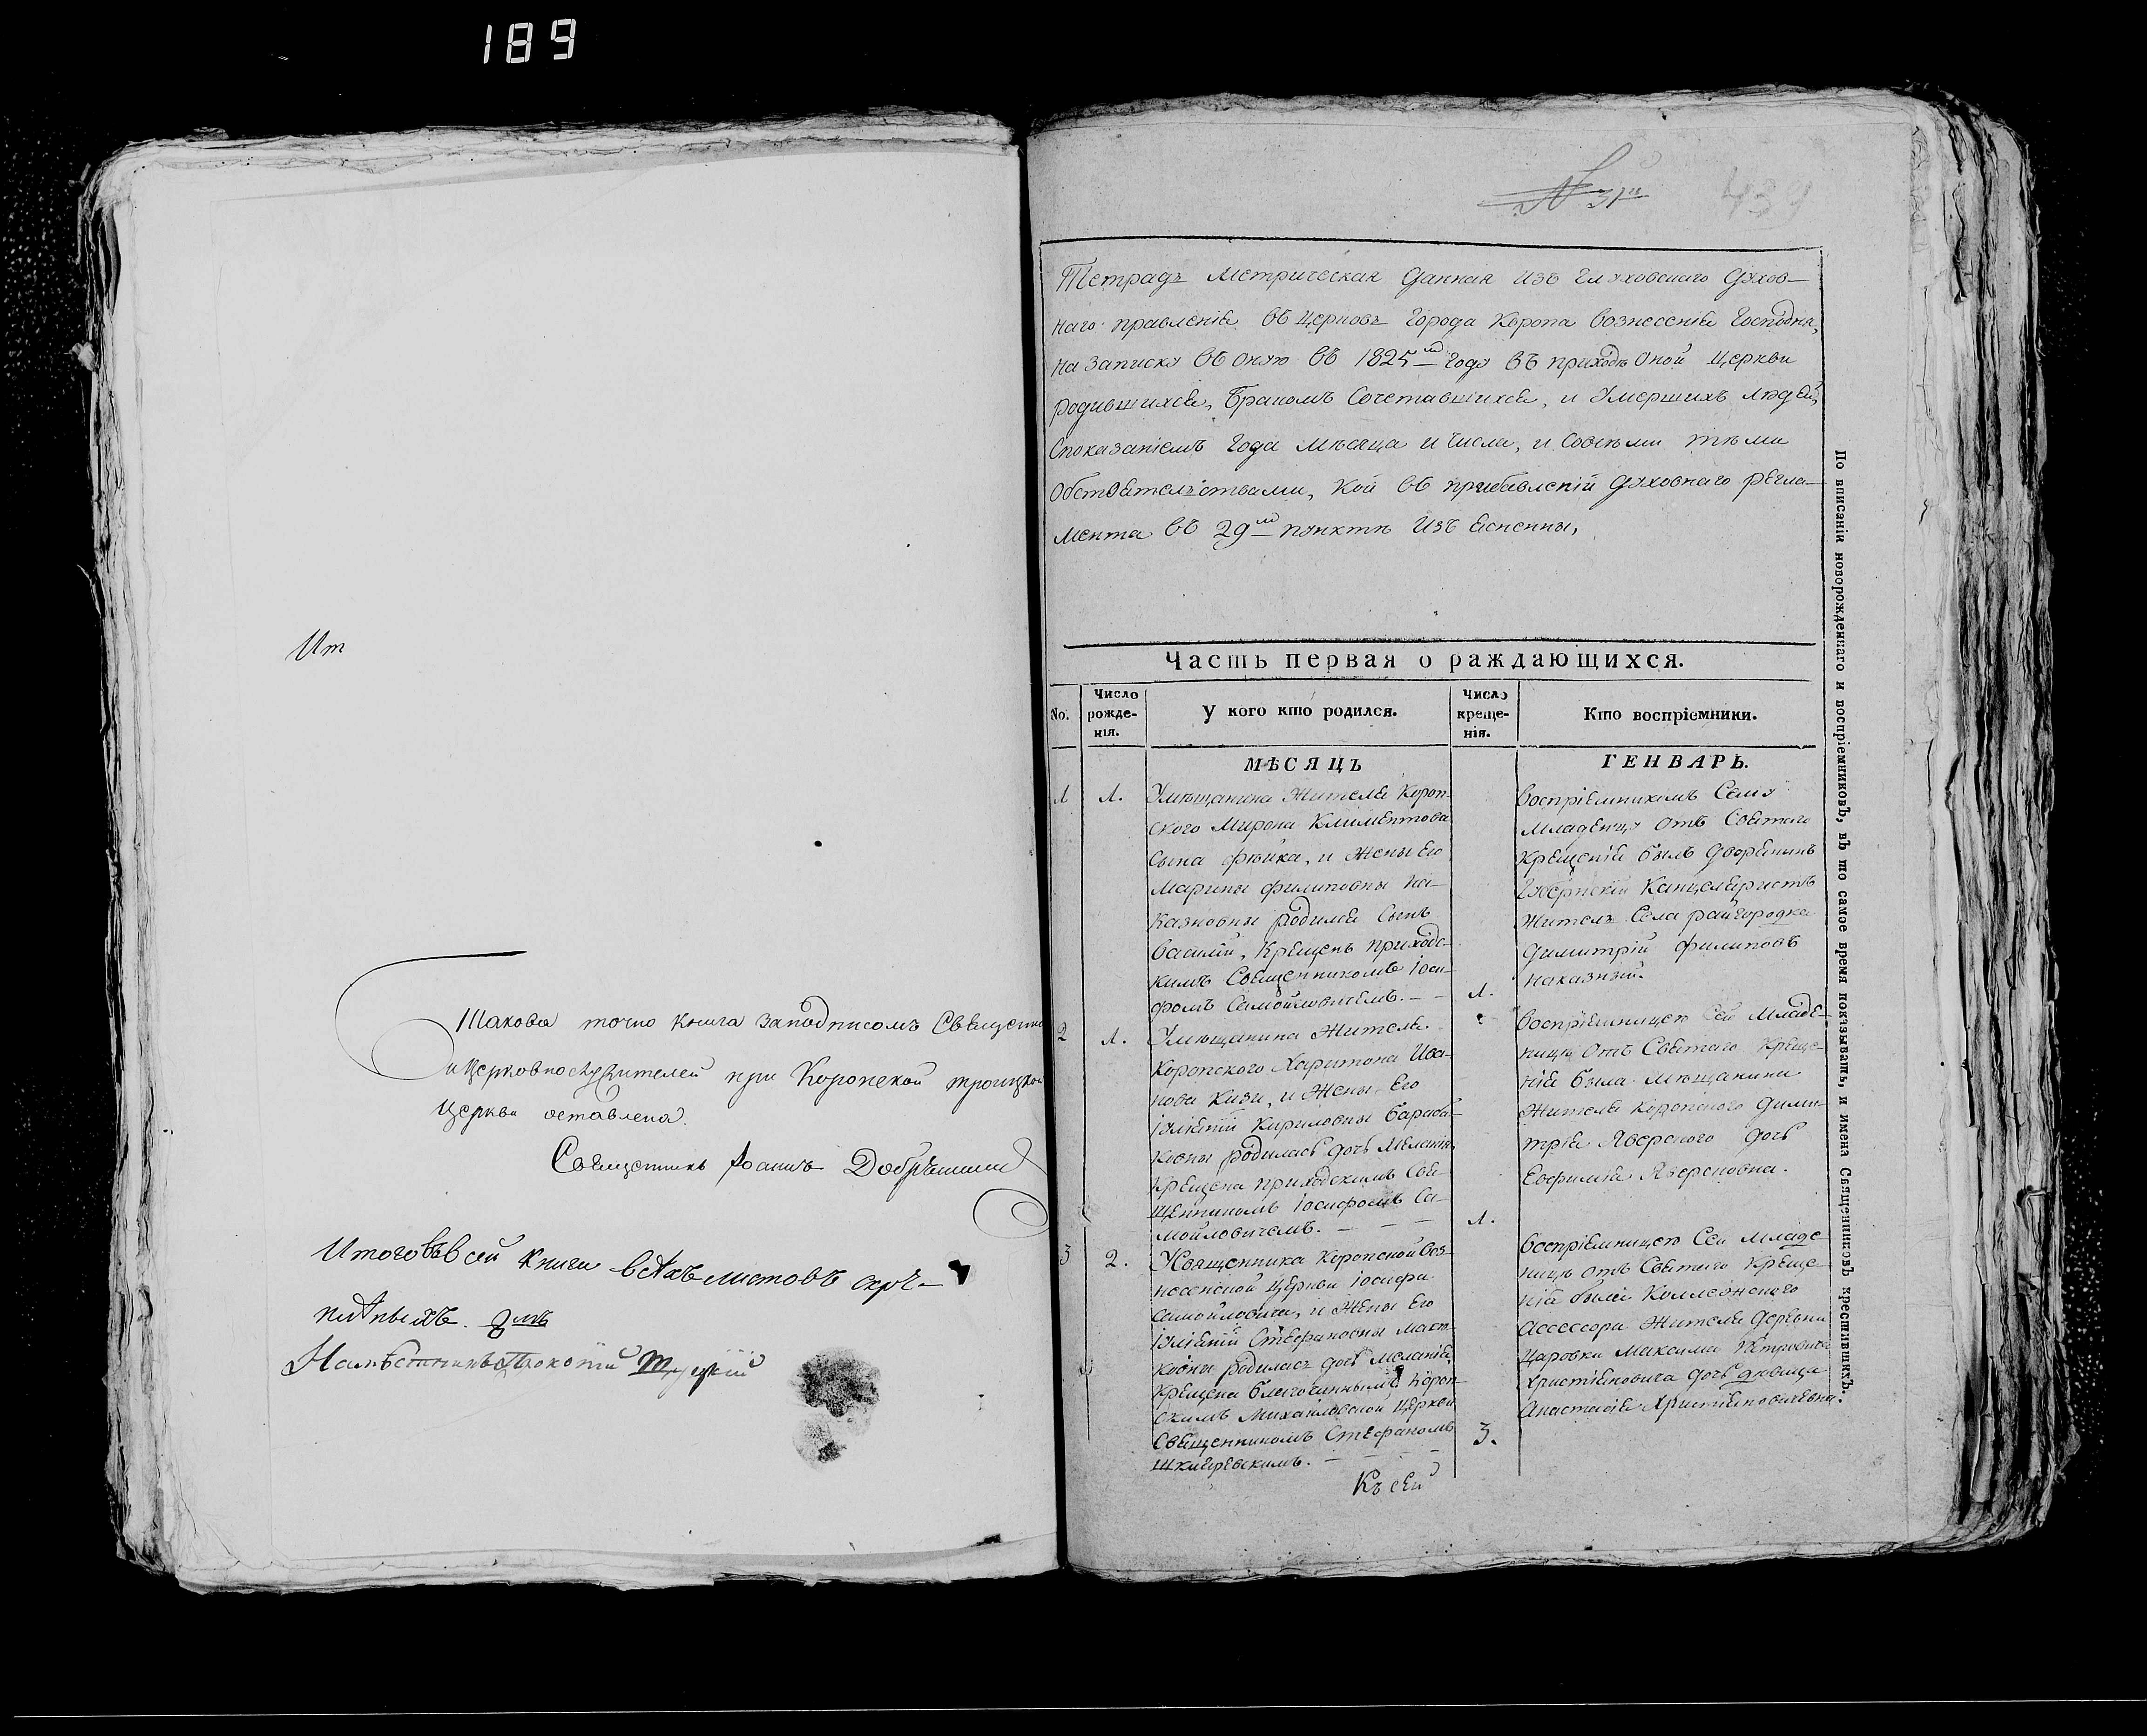 189
Ит
Такова точно книга заподписомъ Священи
и Церковнослужителей при Коропской троицкой
Церкви оставлена.
Священникъ Іоаннъ
Итого въ сей книги всѣхъ листовъ скрѣ-
пленныхъ
439
Тетрадь Метрическая данная изъ глуховскаго духов-
наго правленія въ церковь города Коропа вознесенія Господня,
на записку въ оную въ 1825м году въ приходѣ оной церкви
родившихся, бракомъ сочетавшихся, и умершихъ людей,
споказаніемъ года мѣсяца и числа, и совсѣми тѣми
обстоятельствами, кои въ прибавленіи духовнаго регла-
мента въ 29м пунктѣ изъяснены,
Часть первая о раждающихся.
No.
Число рожде- нія.
У кого кто родился.
Число креще- нія.
Кто воспріемники.
МѢСЯЦЪ
ГЕНВАРЬ.
1 1.
Умѣщанина жителя Короп-
ского Мирона Климентова
сына, и жены его
Марины Филиповны На-
казновны родился сынъ
Василій, крещенъ приходс-
кимъ священникомъ Іоси-
фомъ Самойловичемъ. — —
1.
воспріемникомъ сему
младенцу отъ Святаго
крещенія былъ дворянинъ
Губернскій Канцеляристъ
житель села райгородка
Димитрій Филиповъ
Наказный.
2 1.
Умѣщанина жителя
Коропского Харитона Ива-
нова, и жены его
Іуліаніи Кириловны
родилась дочь Меланія,
крещена приходскимъ свя-
щенникомъ Іосифомъ Са-
мойловичемъ. — — —
1.
воспріемницею сей младе-
ницы отъ Святаго креще-
нія была мѣщанина
жителя Коропского Дими-
трія Яверского дочь
Евфимія Яверсковна.
3 2.
Усвященника Коропской воз-
несенской церкви Іосифа
Самойловича, и жены его
Іуліаніи Стефановны
родилась дочь Меланія,
крещена благочиннымъ Короп-
скимъ Михайловской церкви
священникомъ Стефаномъ
3.
воспріемницею сей младе-
ницы отъ Святаго креще-
нія была Коллежского
Ассесора жителя деревни
Царовки Максима Петровича
Христіановича дочь дѣвица
Анастасія Христіановичевна.
Къ сей
По вписаніи новорожденнаго и воспріемниковъ, въ то самое время показывать, и имена Священниковъ крестившихъ.